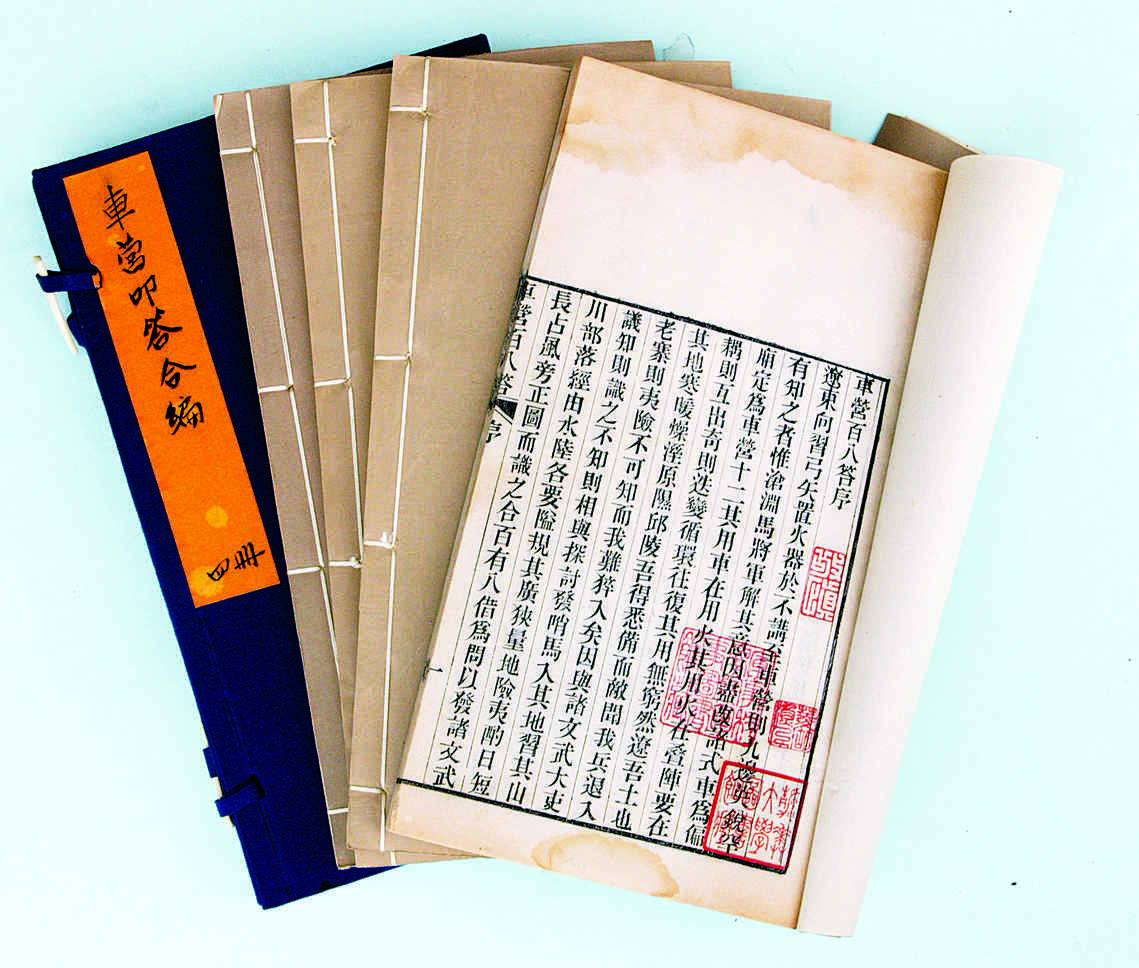 車營叩答合編
四冊
車營百八答序
遼東向習弓矢置火器於不講至車營則九邊
有知之者惟滄淵馬將軍解其意因盡改諸式車為偏
廂定為車營十二其用車在用火其用火在疊陣要在
耦則互出奇則迭變循環往復其用無窮然遼吾土也
其地寒暖燥溼原隰邱陵吾得悉備而敵聞我兵退入
老寨則夷險不可知而我難猝入矣因與諸文武大吏
議知則識之不知則相與探討發哨馬入其地習其山
川部落經由水陸各要隘規其廣狹量地險夷酌日短
長占風旁正圖而識之合百有八借為問以發諸文武
車營百八答
序
一